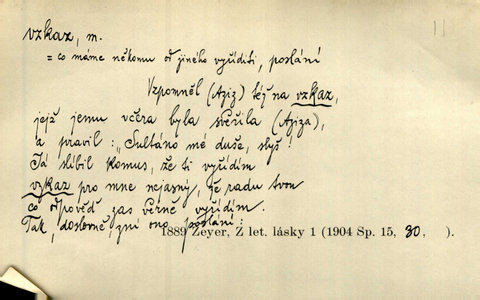 vzkaz, m.
= co máme někomu od jiného vyříditi, poslání
Vzpomněl (Aziz) též na vzkaz,
jejž jemu včera byla svěřila (Aziza),
a pravil: „Sultáno mé duše, slyš!
Já slíbil komus, že ti vyřídím
vzkaz pro mne nejasný, že radu tvou
co odpověď zas věrně vyřídím.
Tak, doslovně, zní ono poslání:
1889 Zeyer, Z let. lásky 1 (1904 Sp. 15, 80, ).